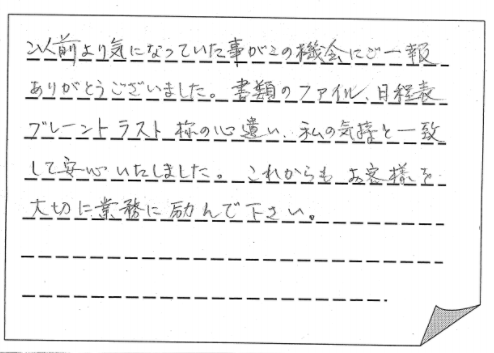 以前より気になっていた事がこの機会にご一報
ありがとうございました。書類のファイル、日程表
ブレーントラスト様の心遣い、私の気持と一致
して安心いたしました。これからもお客様を
大切に業務に励んで下さい。